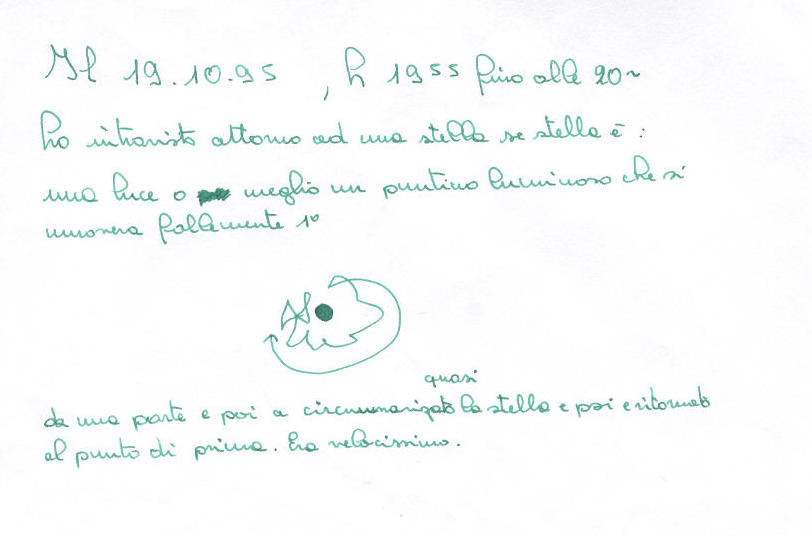 Il 19.10.95, h 19 55 fino alle 20~
ho intravisto attorno ad una stella se stella è:
una luce o meglio un puntino luminoso che si
muoveva follemente 1°
quasi
da una parte e poi a circumnavigato la stella e poi e ritornato
al punto di prima. Era velocissimo.